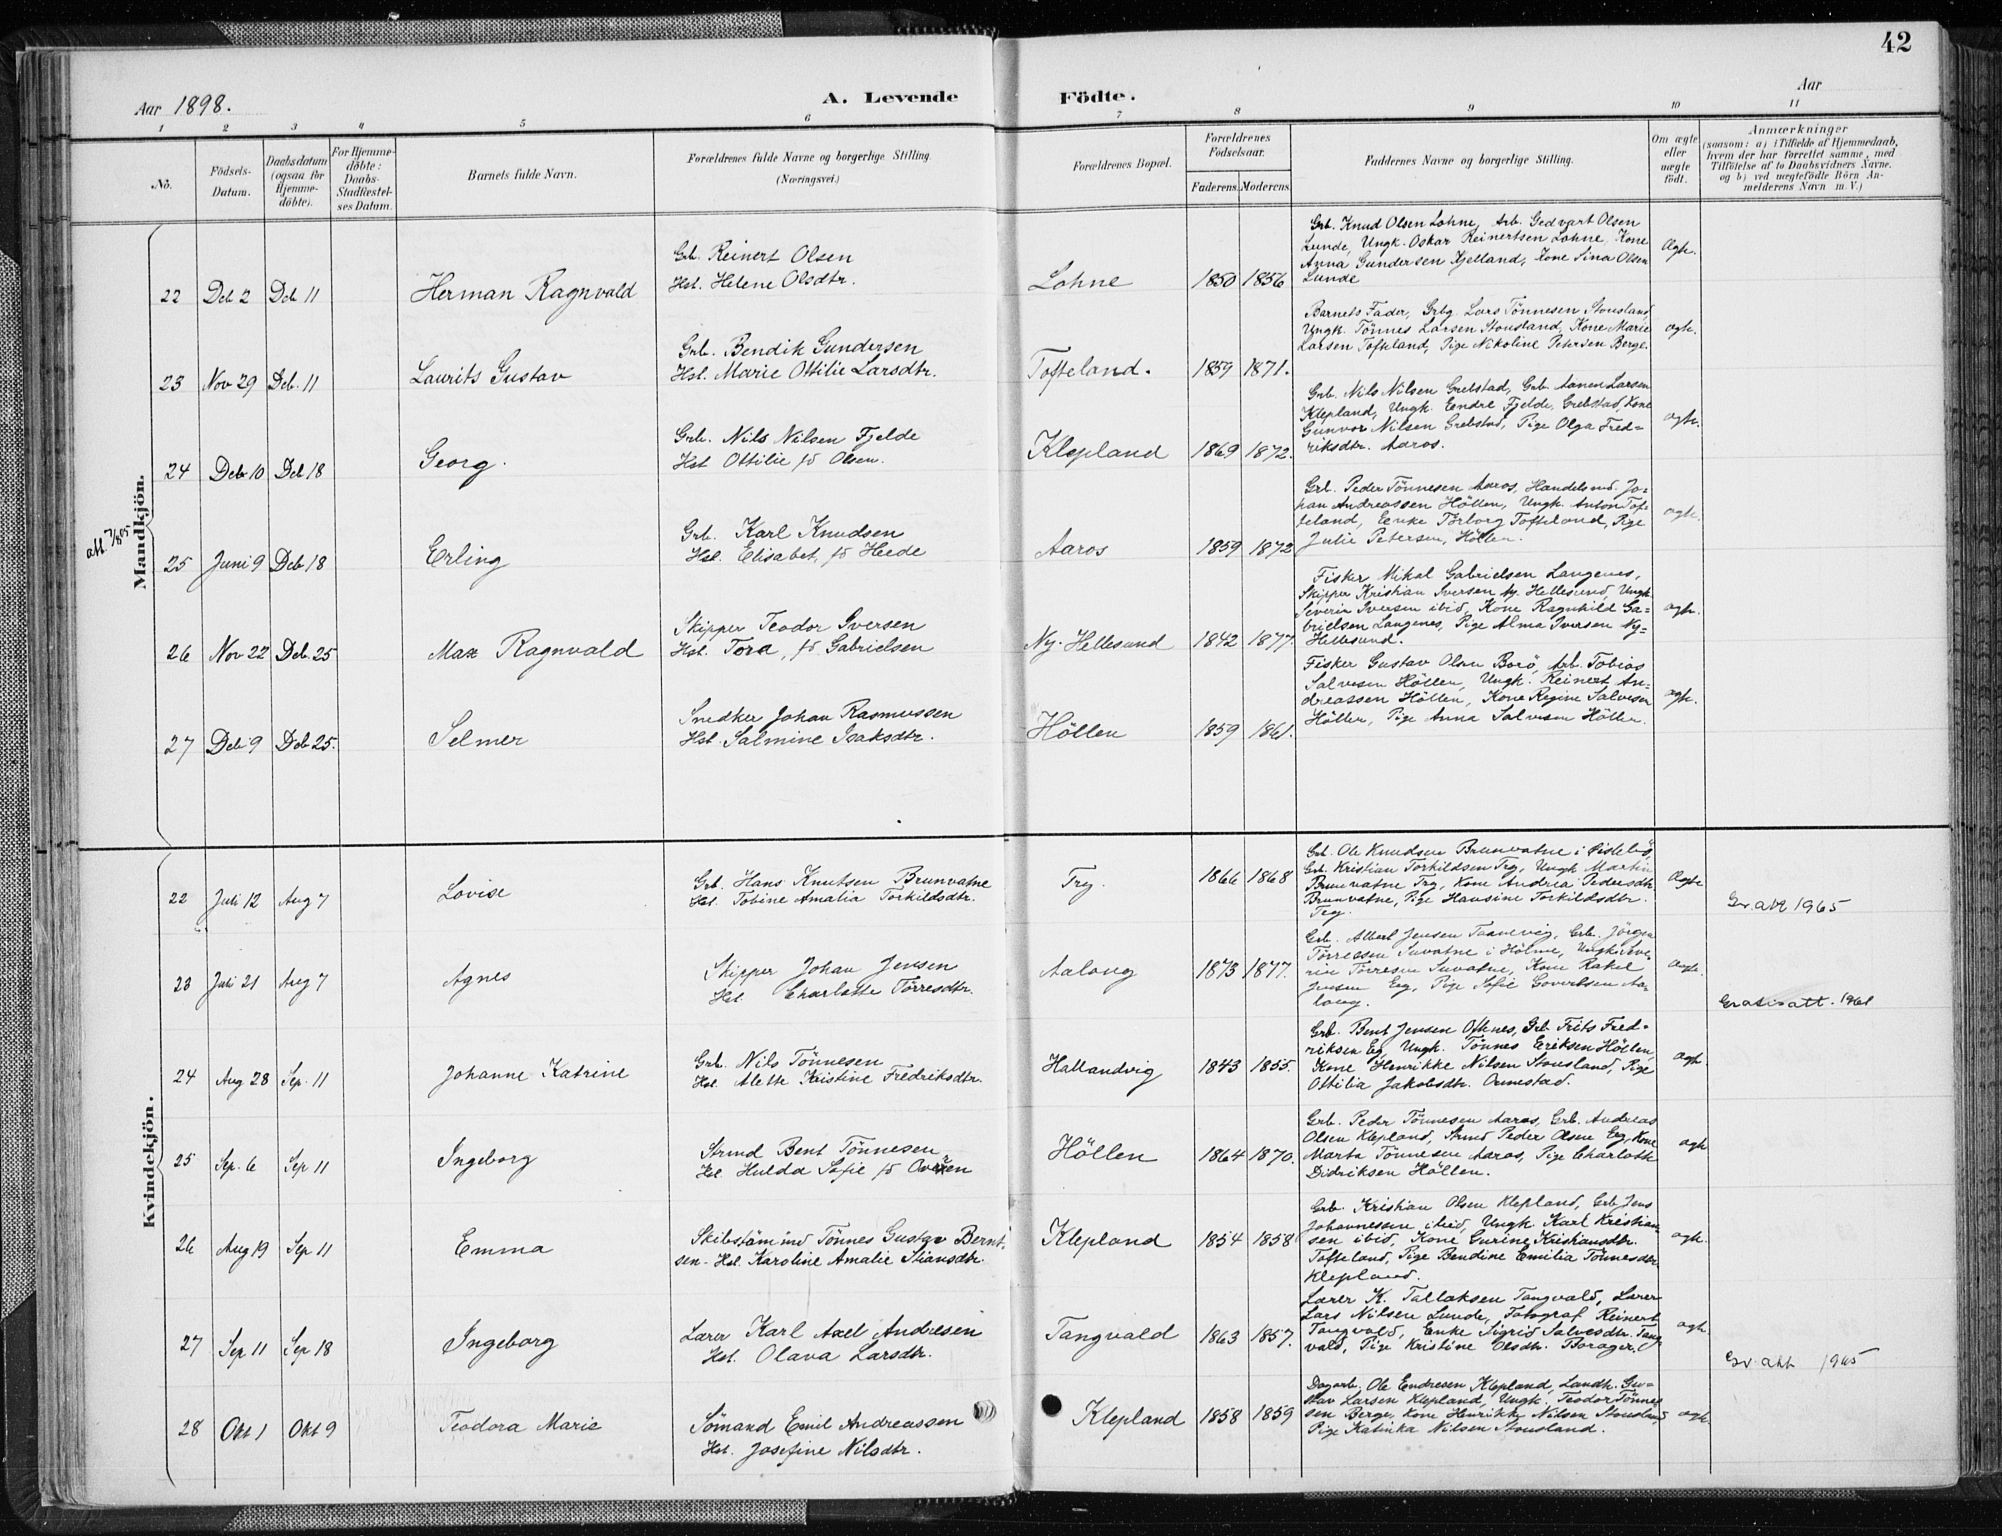 42
Aar 1898.
A. Levende Födte.
Aar
1 2 3 4 5 6 7 8 9 10 11
No.
Födsels-
Datum.
Daabsdatum
(ogsaa for
Hjemme-
döbte).
For Hjemme-
döbte:
Daabs-
Stadfæstel-
ses Datum.
Barnets fulde Navn.
Forældrenes fulde Navne og borgerlige Stilling.
(Næringsvei.)
Forældrenes Bopæl.
Forældrenes
Födselsaar.
Faderens. Moderens.
Faddernes Navne og borgerlige Stilling.
Om ægte
eller
uægte
födt.
Anmærkninger
(saasom: a) i Tilfælde af Hjemmedaab,
hvem der har forrettet samme, med
Tilföielse af to Daabsvidners Navne.
og b) ved uægtefödte Börn An-
melderens Navn m. V.)
Mandkjön.
22 Deb 2 Deb 11 Herman Ragnvald
Grb. Reinert Olsen
Hst. Helene Olsdtr.
Lohne 1850 1856
Grb. Knud Olsen Lohne, Arb. Gedvart Olsen
Lunde, Ungk. Oskar Reinertsen Lohne, Kone
Anna Gundersen Kjelland, Kone Sina Olsen
Lunde
Ægte.
23 Nov 29 Deb. 11 Laurits Gustav
Grb. Bendik Gundersen
Hst. Marie Ottilie Larsdtr.
Tofteland. 1859 1871.
Barnets Fader, Grbg. Lars Tönnesen Stousland,
Ungk. Tönnes Larsen Stousland, Kone Marie
Larsen Tofteland, Pige Nikoline Petersen Berge.
ægte.
24 Deb 10 Deb 18 Georg.
Grb. Nils Nilsen Fjelde
Hst Ottilie fd Olsen.
Klepland 1869 1872.
Grb. Nils Nilsen Grebstad, Grb. Aanen Larsen
Klepland, Ungk. Endre Fjelde, Grebstad, Kone
Gunvor Nilsen Grebstad, Pige Olga Fred=
riksdtr. Aaros.
ægte.
att. 7/8 05
25 Juni 9 Deb 18 Erling
Grb. Karl Knudsen
Hst. Elisabet, fd Heede
Aaros 1859 1872
Grb. Peder Tönnesen Aaros, Handelsmd. Jo=
han Andreassen Höllen, Ungk. Anton Tof=
teland, Enke Torborg Tofteland, Pige
Julie Petersen, Höllen.
ægte.
26 Nov 22 Deb. 25 Max Ragnvald
Skipper Teodor Iversen
Hst. Tora, fd. Gabrielsen
Ny-Hellesund 1842 1877.
Fisker Mikal Gabrielsen Langenes,
Skipper Kristian Iversen Ny Hellesund, Ungk
Severin Iversen ibid, Kone Ragnhild Ga=
brielsen Langenes, Pige Alma Iversen Ny=
Hellesund.
ægte.
27 Deb 9 Deb 25. Selmer
Snedker Johan Rasmussen
Hst. Salmine Isaksdtr.
Höllen 1859 1861.
Fisker Gustav Olsen Borö, Arb. Tobias
Salvesen Höllen, Ungk. Reinert An=
dreassen Höllen, Kone Regine Salvesen
Höllen, Pige Anna Salvesen Höllen.
ægte.
Kvindekjön.
22 Juli 12 Aug 7 Lovise
Grb. Hans Knutsen Brunvatne
Hst. Tobine Amalia Torkildsdtr.
Try. 1866 1868
Grb. Ole Knudsen Brunvatne i
Grb. Kristian Torkildsen Try, Ungk Martin
Brunvatne Try, Kone Andrea Pedersdtr.
Brunvatne, Pige Hansine Torkildsdtr.
Try.
Ægte
Gr. att 1965
23 Juli 21 Aug 7 Agnes
Skipper Johan Jensen
Hst Charlotte Törresdtr.
Aalong 1873 1877.
Grb. Albert Jensen Taanevig, Grb. Jörgen
Törressen Suvatne i Holme, Ungk. Seve=
rin Törresen Suvatne, Kone Rakel
Jensen Eeg, Pige Sofie Govertsen Aa=
long.
ægte.
Gratis att. 1961
24 Aug 28 Sep. 11 Johanne Katrine
Grb. Nils Tönnesen
Hst. Alette Kristine Fredriksdtr.
Hallandvig 1843 1855.
Grb. Bent Jensen Oftenes, Grb. Frits Fred=
riksen Eeg Ungk. Tönnes Eriksen Höllen,
Kone Henrikke Nilsen Stousland, Pige
Ottilia Jakobsdtr. Ormestad.
ægte
25 Sep. 6 Sep 11 Ingeborg
Strmd Bent Tönnesen
Hst. Hulda Sofie fd
Höllen 1864 1870.
Grb. Peder Tönnesen Aaros, Grb. Andreas
Olsen Klepland, Strmd Peder Olsen Eeg, Kone
Marta Tönnesen Aaros, Pige Charlotte
Didriksen Höllen.
ægte
26 Aug 19 Sep 11 Emma
Skibstömmd Tönnes Gustav Bernt=
sen - Hst. Karoline Amalie Stiansdtr.
Klepland 1854 1858
Grb. Kristian Olsen Klepland, Grb Jens
Johannessen ibid, Ungk. Karl Kristian=
sen ibid, Kone Gurine Kristiansdtr.
Tofteland, Pige Bendine Emilia Tönnesdtr
Klepland.
ægte.
27 Sep 11 Sep 18 Ingeborg
Lærer Karl Axel Andresen
Hst. Olava Larsdtr.
Tangvald 1863 1857.
Lærer K. Tallaksen Tangvald, Lærer
Lars Nilsen Lunde, Fotograf Reinert
Tangvald, Enke Sigrid Salvesdtr. Tang
vald, Pige Kristine Olsdtr.
ægte.
Gr. att 1965
28 Okt 1 Okt 9 Teodora Marie
Sömand Emil Andreassen
Hst. Josefine Nilsdtr.
Klepland 1858 1859
Dagarb. Ole Endresen Klepland, Landh. Gu=
stav Larsen Klepland, Ungk. Teodor Tönnes
sen Berge, Kone Henrikke Nilsen Stousland,
Pige Katinka Nilsen Stousland.
ægte.